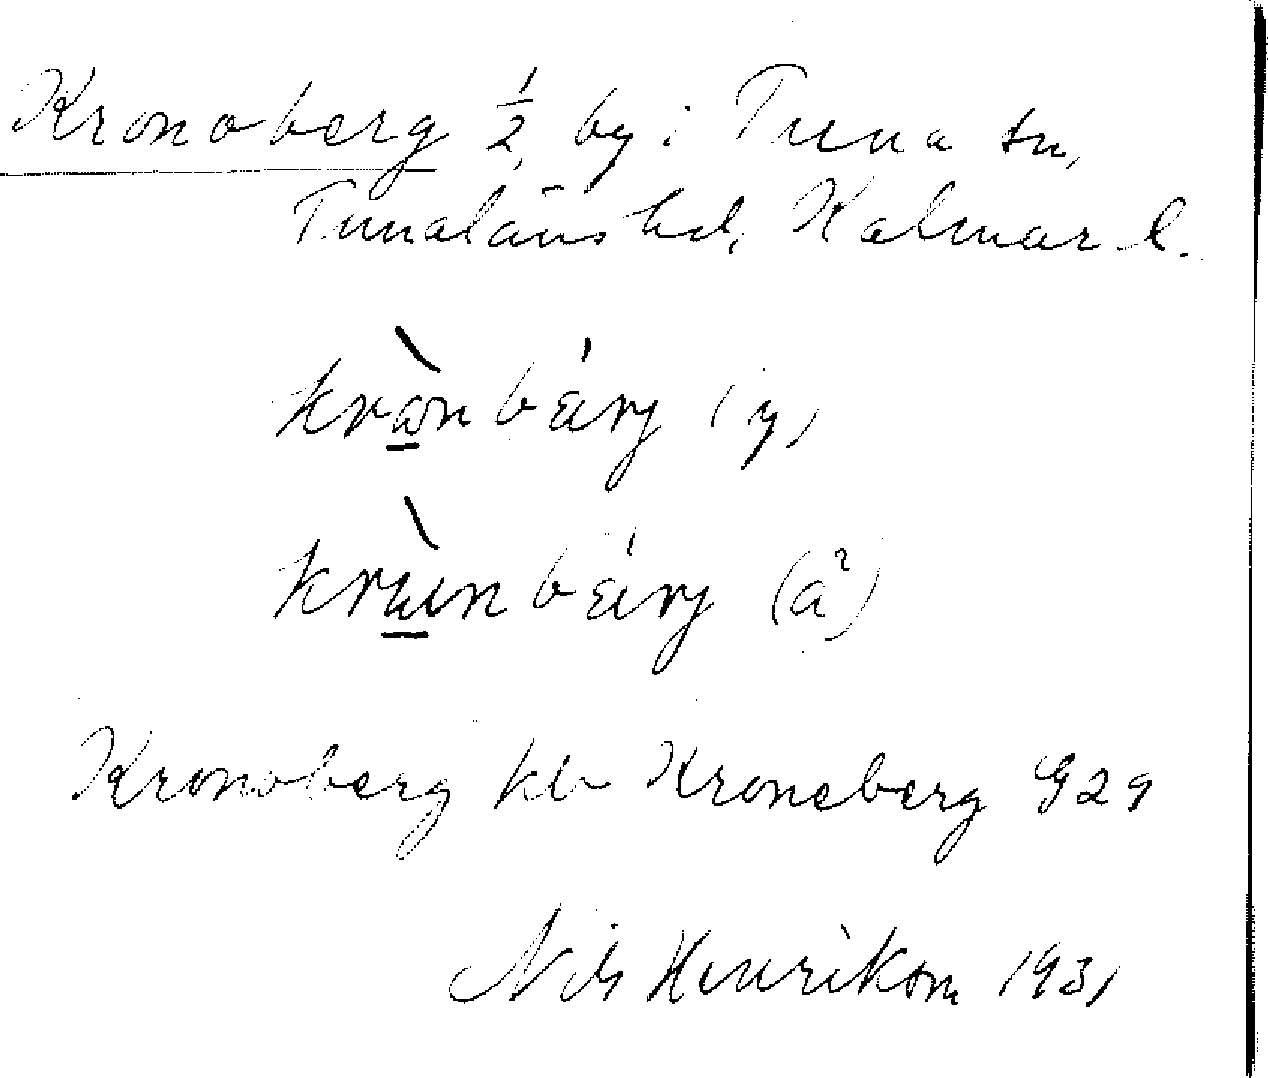 Kronoberg ½ by i Tuna sn,
Tunaläns hd, Kalmar l.
(y)
(ä²)
Kronoberg kb Kroneberg G29
Nils Henrikson 1931